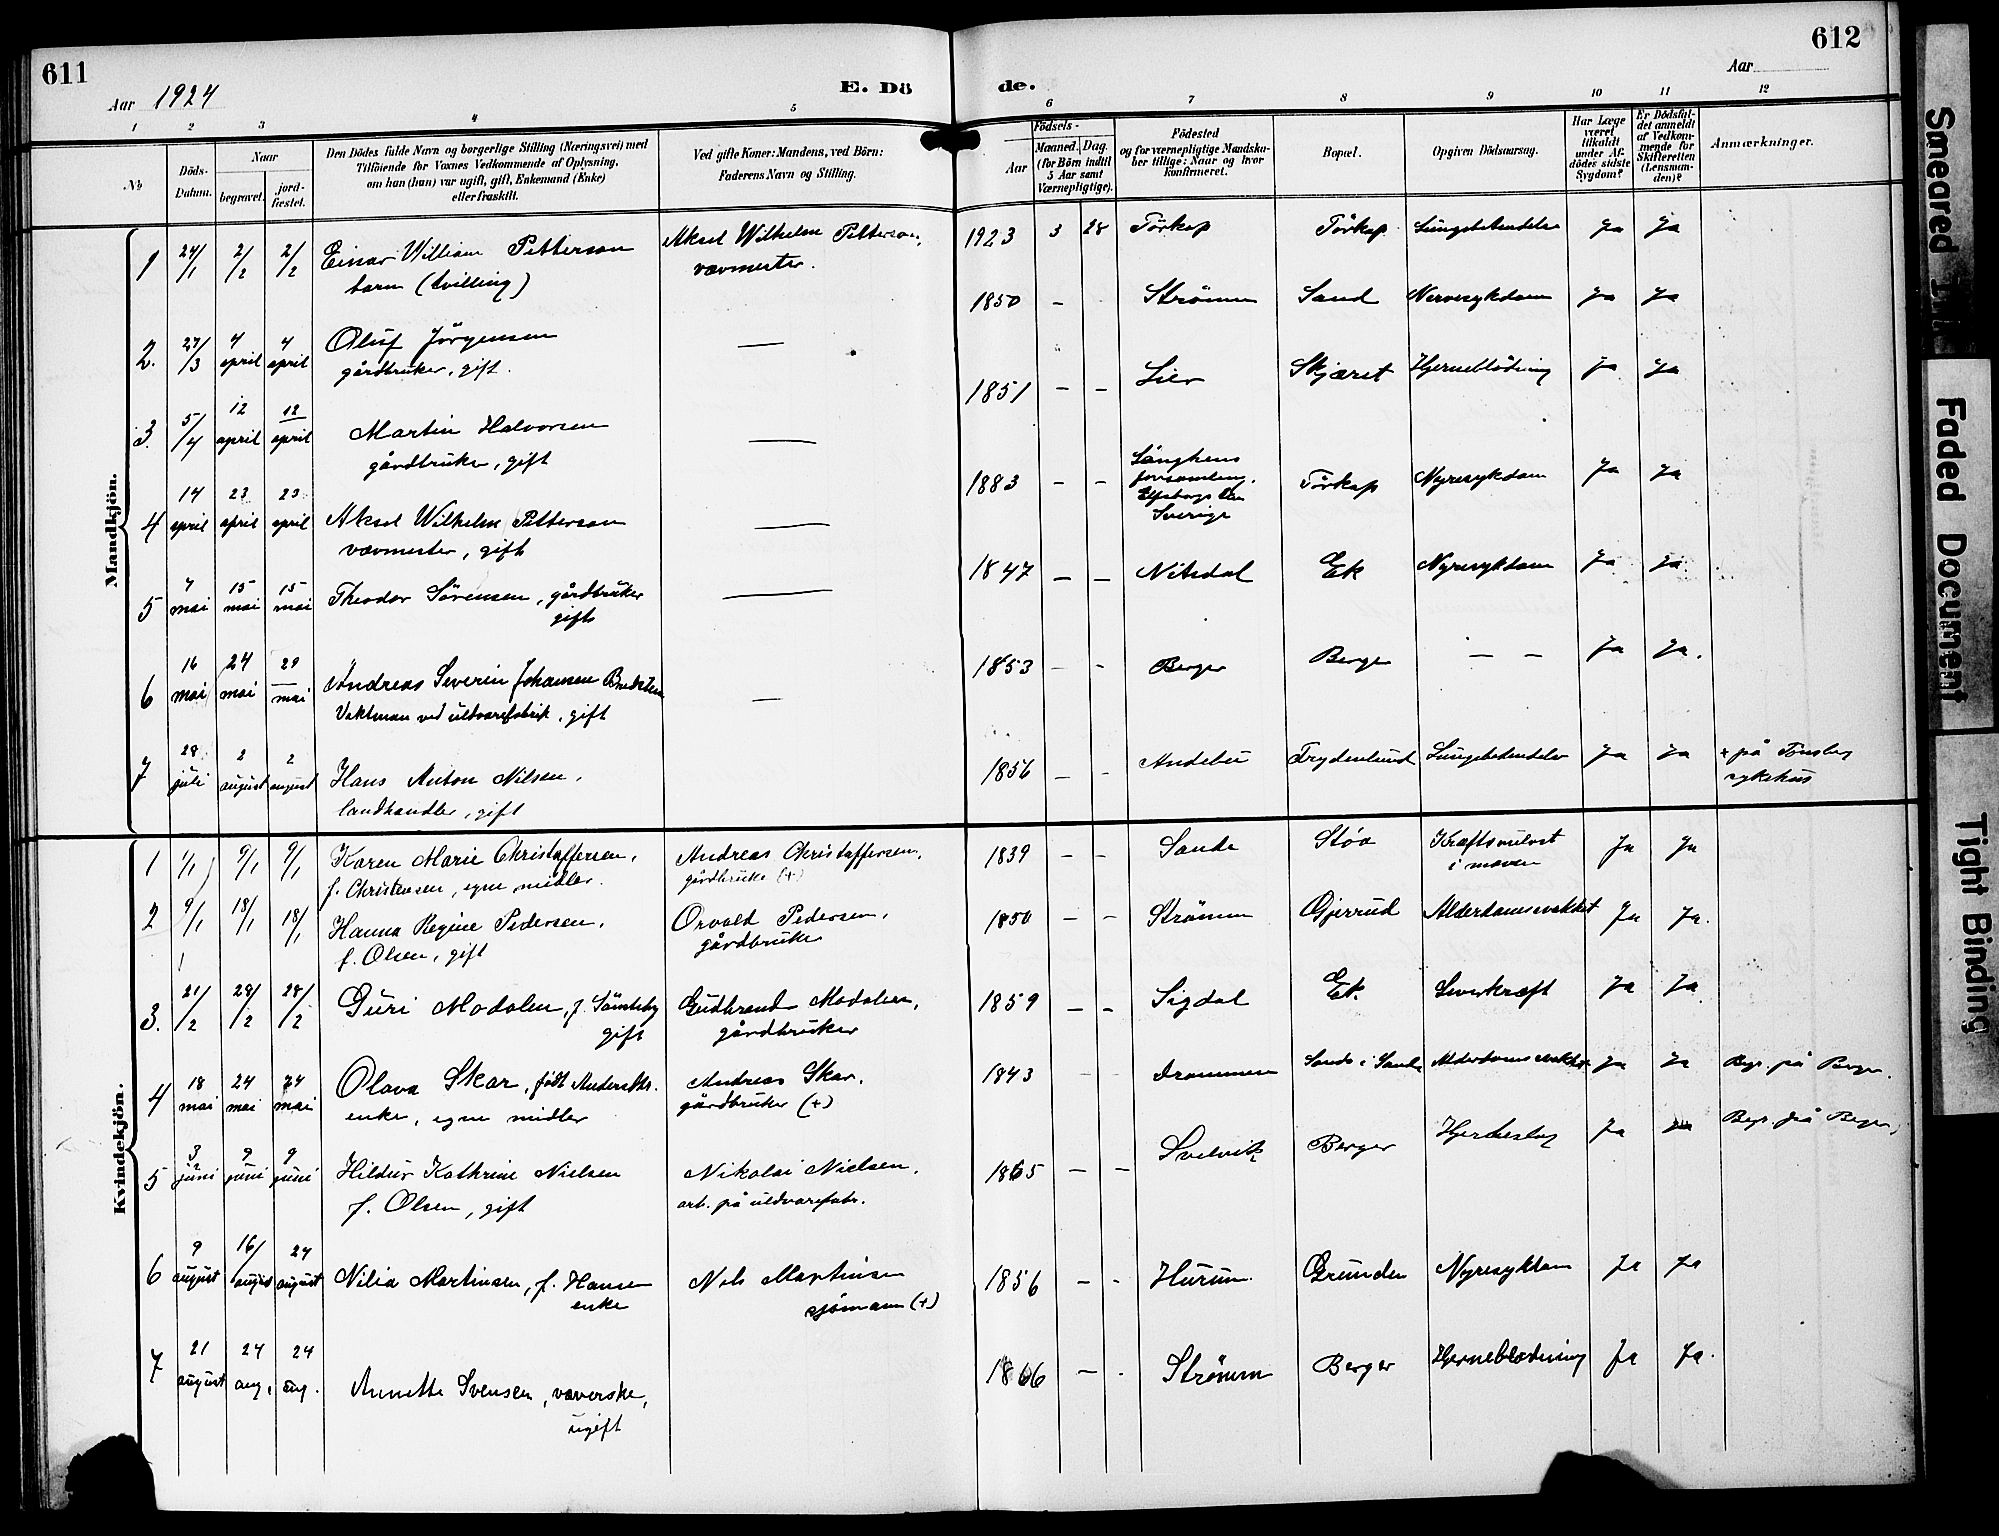 611
Aar 1924
E. Dö
1 2 3 4 5
№
Döds-
Datum.
Naar
begravet.
jord-
fæstet.
Den Dödes fulde Navn og borgerlige Stilling (Næringsvei) med
Tilföiende for Voxnes Vedkommende af Oplysning,
om han (hun) var ugift, gift, Enkemand (Enke)
eller fraskilt.
Ved gifte Koner: Mandens, ved Börn:
Faderens Navn og Stilling.
Mandkjön.
1 24/1 2/2 2/2 Einar William Petterson Aksel Wilhelm Petterson,
barn (tvilling) vævmester.
2. 27/3 4 april 4 april Oluf Jörgensen —
gårdbruker, gift.
3. 5/4 12 april 12 april Martin Halvorsen —
gårdbruker, gift
4 14 april 23 april 23 april Aksel Wilhelm Petterson —
vævmester, gift
5 7 mai 15 mai 15 mai Theodor Sörensen, gårdbruker —
gift
6 16 mai 24 mai 29 mai Andreas Severin Johansen —
Vaktman ved uldvarefabrik, gift
7 28 juli 2 august 2 august Hans Anton Nilsen,
landhandler, gift
Kvindekjön.
1 1/1 9/1 9/1 Karen Marie Christoffersen, Andreas Christoffersen,
f. Christensen, egne midler. gårdbruker (+)
2 9/1 18/1 18/1 Hanna Regine Pedersen, Orvald Pedersen,
f. Olsen, gift gårdbruker
3. 21/2 28/2 28/2 Guri Modalen, f. Gudbrand Modalen,
gift gårdbruker
4 18 mai 24 mai 24 mai Olava Skar, født Andersdtr. Andreas Skar,
enke, egne midler gårdbruker (+)
5 3 juni 9 juni 9 juni Hildur Kathrine Nielsen Nikolai Nielsen,
f. Olsen, gift arb. på uldvarefabr.
6 9 august 16/ august 24 august Nilia Martinsen, f. Hansen Nels Martinsen
enke sjömann (+)
7 21 august 24 aug. 24 aug. Annette Svensen, væverske,
ugift
612
Aar
de.
6 7 8 9 10 11 12
Födsels-
Aar
Maaned. Dag.
(for Börn indtil
5 Aar samt
Værnepligtige).
Födested
og for værnepligtige Mandska-
ber tillige: Naar og hvor
konfirmeret.
Bopæl.
Opgiven Dödsaarsag.
Har Læge
været
tilkaldt
under Af-
dödes sidste
Sygdom?
Er Dödsfal-
det anmeldt
af Vedkom-
mende for
Skifteretten
(Lensman-
den)?
Anmærkninger.
1923 3 28 Törkop Törkop Lungebetendelse Ja Ja
1850 - - Strömm Sand Nervesykdom Ja Ja
1851 - - Lier Skjæret Hjerneblödning Ja Ja
1883 - - Länghens
forsamling,
Elfsborgs län
Sverige Törkop Nyresykdom Ja Ja
1847 - - Nitedal Ek Nyresykdom Ja Ja
1853 - - Berger Berger — — Ja Ja.
1856 - - Andebu Frydenlund Lungebetendelse Ja Ja + på Tönsberg
sykehus
1839 - - Sande Støa Kræftsvulst
i maven Ja Ja
1850 - - Strömm Gjerrud Alderdomssvakhet Ja Ja.
1859 - - Sigdal Ek. Leverkræft Ja Ja
1843 - - Drammen Sande i Sande Alderdomssvakhet Ja Ja Begr. på Berger.
1865 - - Svelvik Berger Hjerteslag Ja Ja Begr. på Berger,
1856 - - Hurum Grunden Nyresykdom Ja Ja
1866 - - Strömm Berger Hjerneblødning Ja Ja.
Smeared Ink
Faded Document
Tight Binding